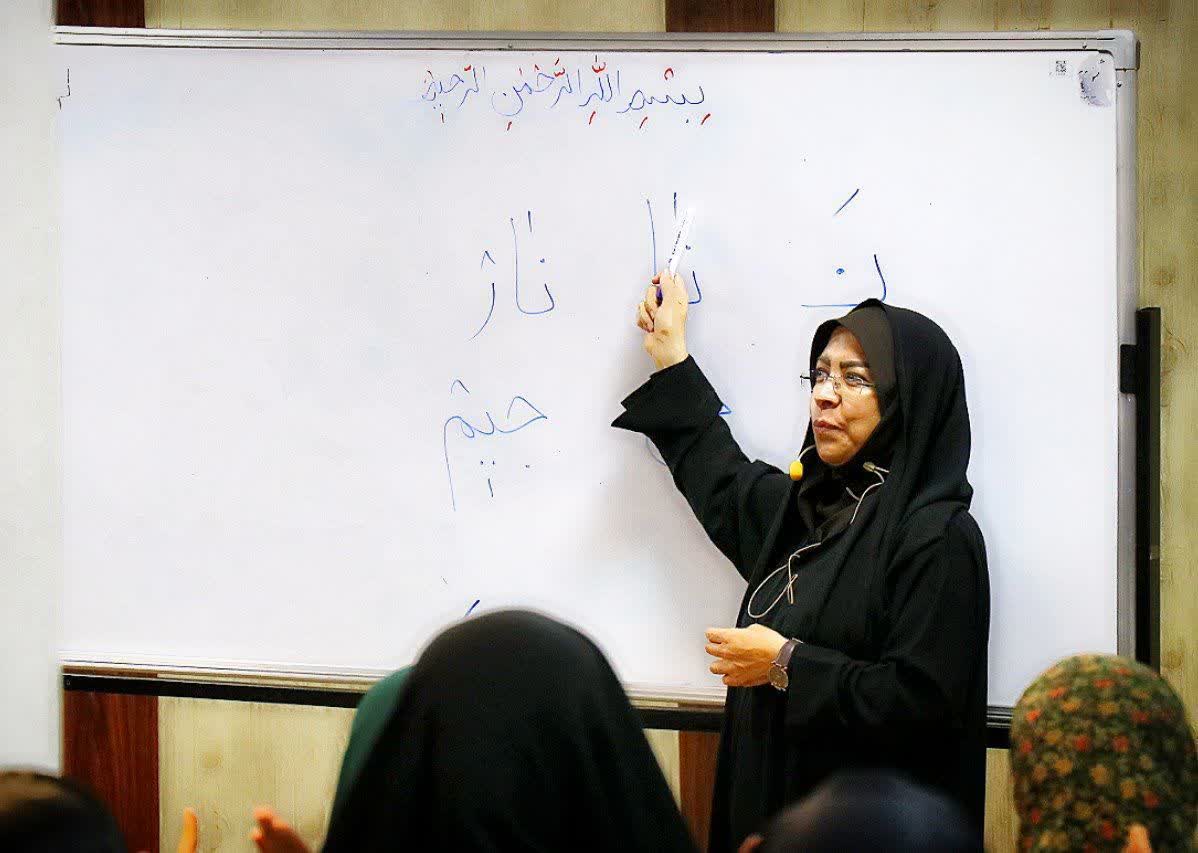 بِسْمِ اللَّهِ الرَّحْمٰنِ الرَّحیمِ
نَـ نٰا نٰارْ
جیٖمْ